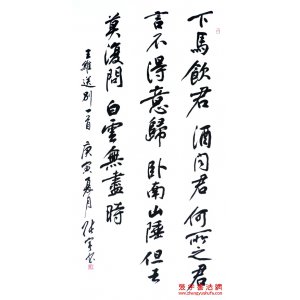 下馬飲君酒问君何所之君
言不得意歸卧南山陲但去
莫復問白雲無盡時
王維送别一首庚寅夏月